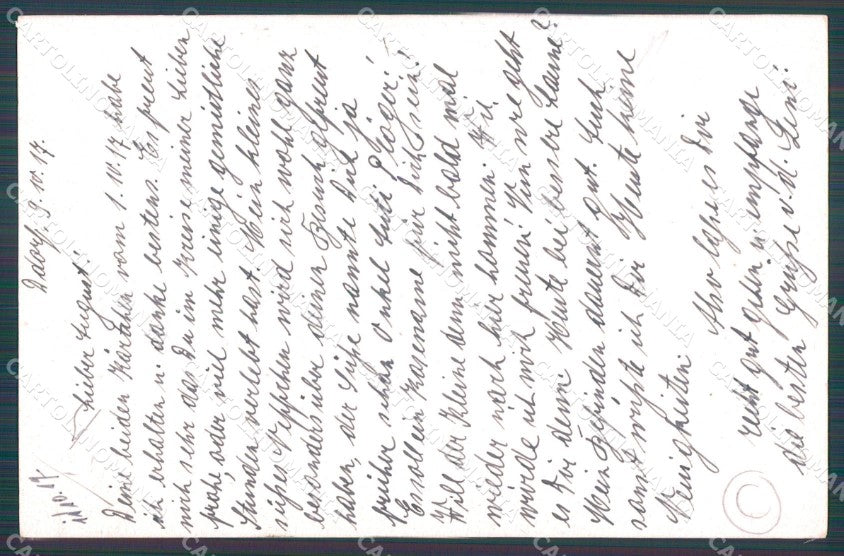 Ddorf, 9.10.17.
Lieber August
Deine beiden Kärtchen vom 1.10.17 habe
ich erhalten u. danke bestens. Es freut
mich sehr das Du im Kreise meiner Lieben
frohe, oder viel mehr einige gemütliche
Stunden verlebt hast. Mein kleines
süßes Nippchen wird sich wohl ganz
besonders über deinen Besuch gefreut
haben, der Süße nannte Dich ja
früher schon Onkel
Es soll ein Kosename für Dich sein!
Will der Kleine denn nicht bald mal
wieder nach hier kommen. Wie
würde ich mich freuen! Nun wie geht
es Dir denn? Heute bei bessere Laune?
Mein Befinden dauernd gut. Auch
sonst wüßte ich Dir Heute keine
Neuigkeiten. Also laß es Dir
recht gut gehen u. empfange
die besten Grüße v. d. Leni.
CARTOLINOMANIA